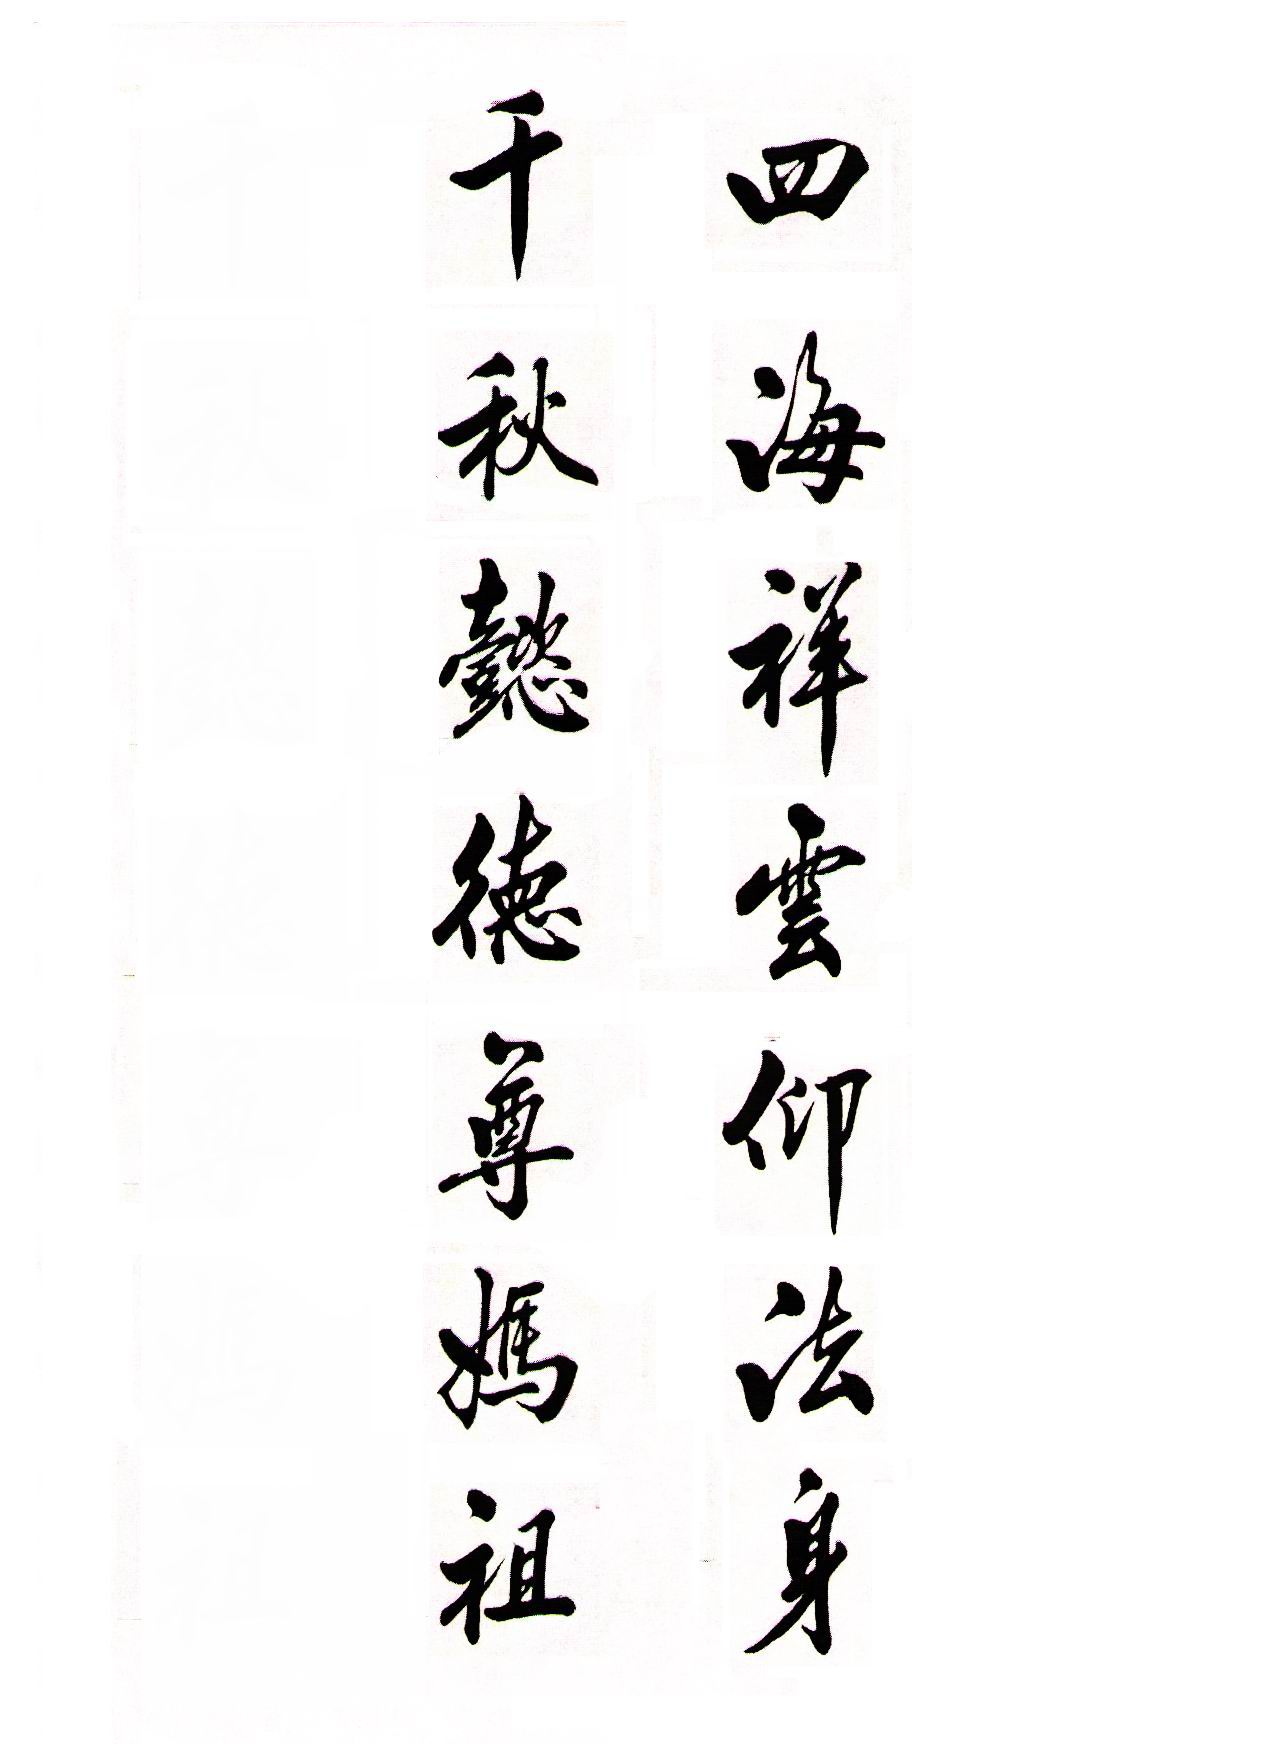 四海祥雲仰法身
千秋懿德尊媽祖